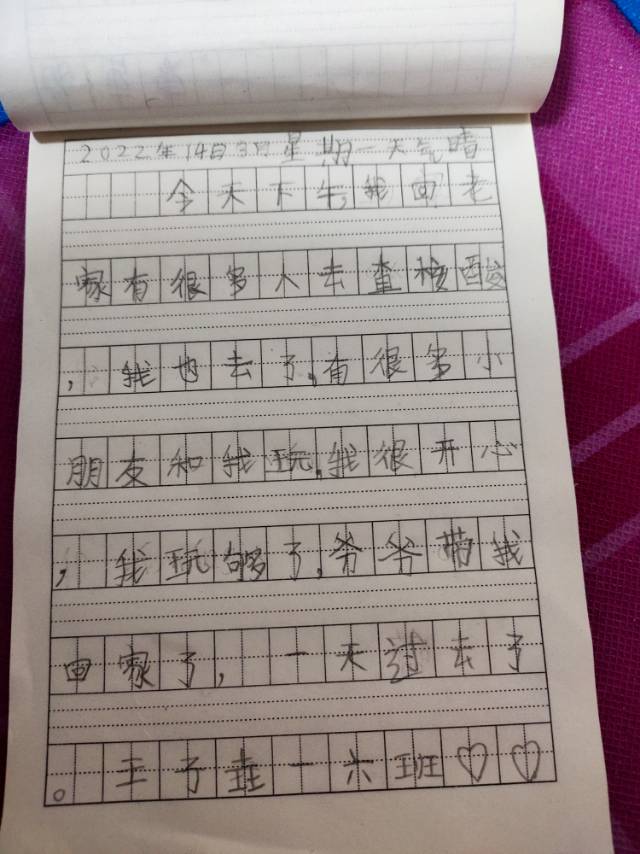 2022年14日3月星期一天气晴
今天下午,我回老
家有很多人去查核酸
,我也去了,有很多小
朋友和我玩,我很开心
,我玩够了,爷爷带我
回家了,一天过去了
。王子垚一六班♡♡